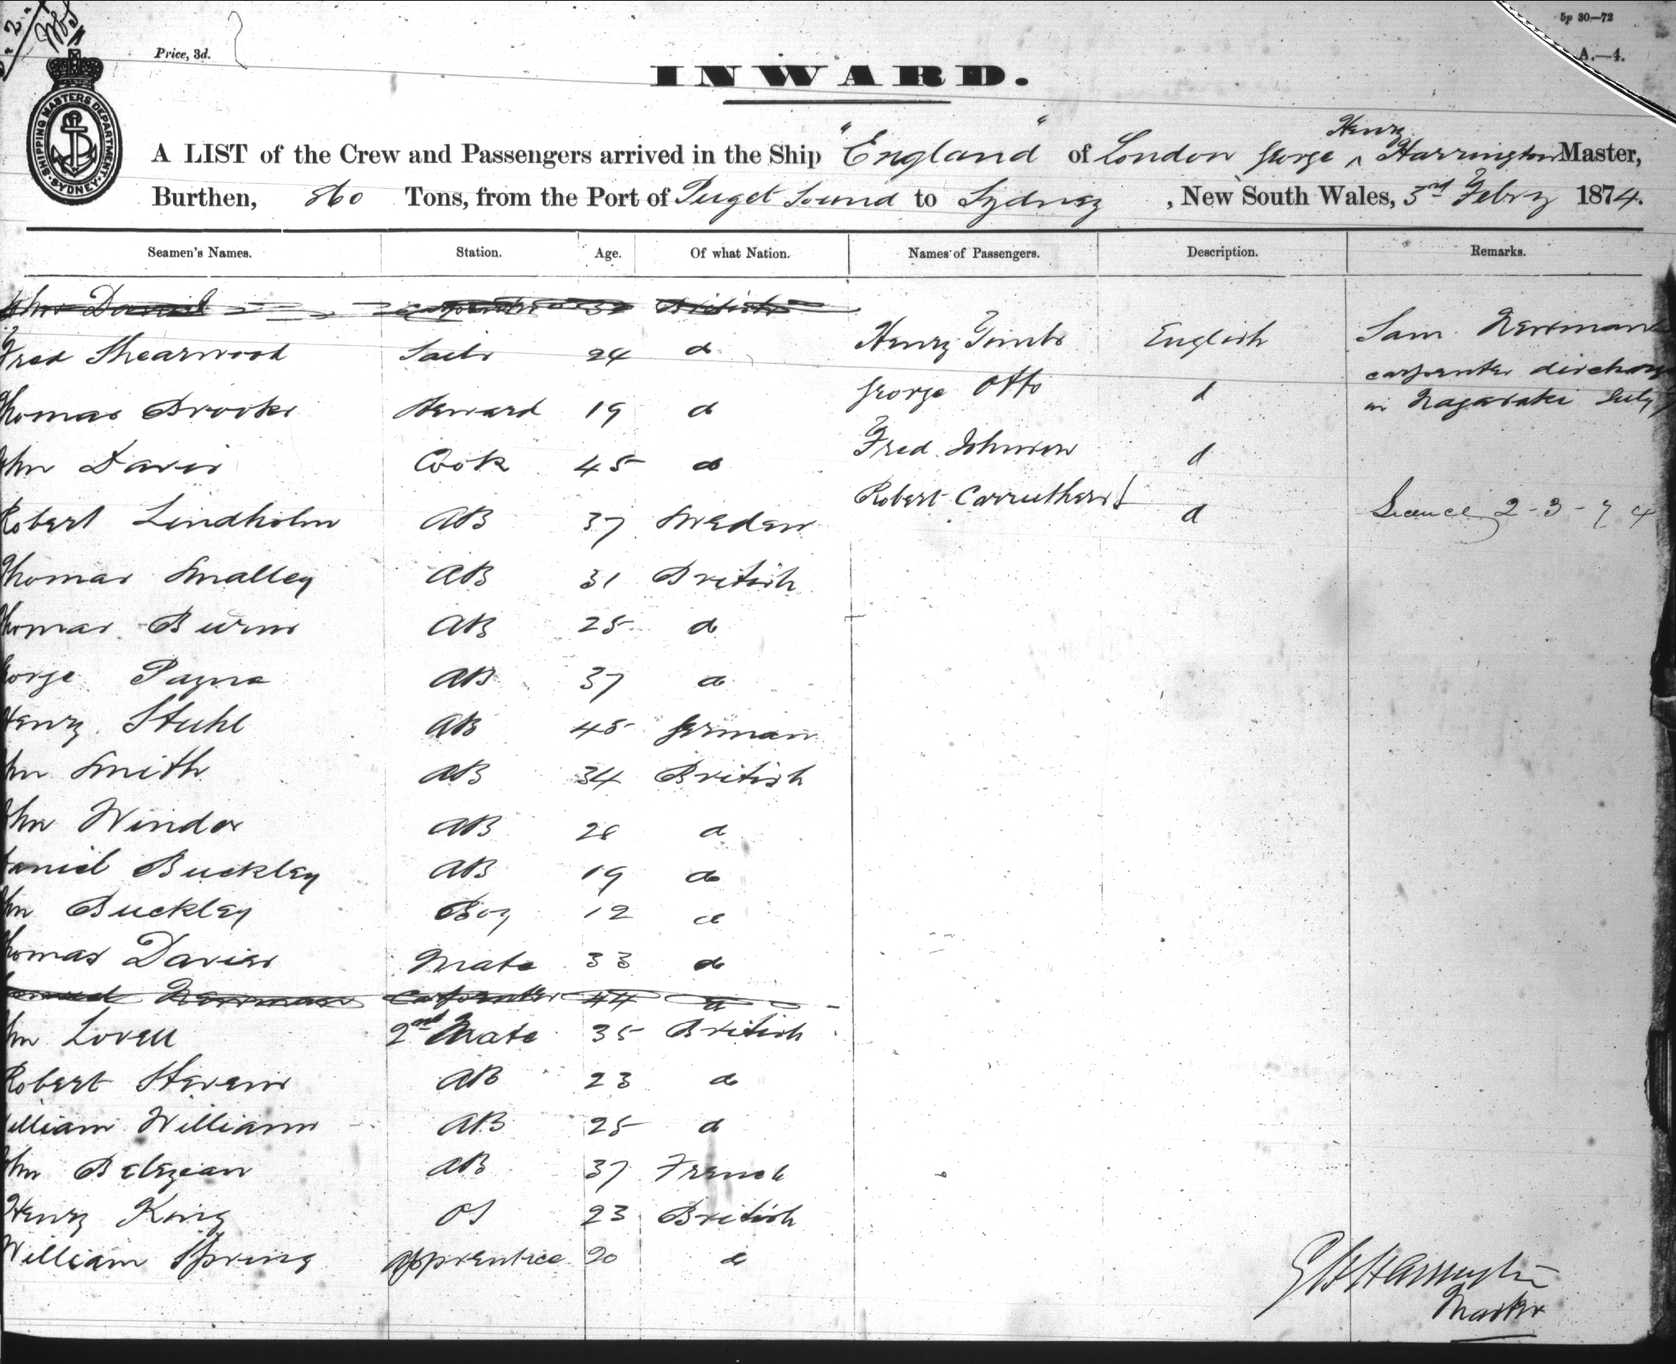 5p 30—72
Price, 3d.
A.—4.
INWARD.
SHIPPING MASTERS DEPARTMENT. SYDNEY.
A LIST of the Crew and Passengers arrived in the Ship "England" of London George Henry Harrington Master,
Burthen, 860 Tons, from the Port of Puget Sound to Sydney, New South Wales, 3rd Febry 1874.
Seamen's Names. Station. Age. Of what Nation. Names of Passengers. Description. Remarks.
John Daniel carpenter British
Fred Shearwood Sails 24 do Henry Timbs English Sam Merriman
carpenter discharge
Thomas Brooks Steward 19 do George Otto d in Nagasaki July
John Davis Cook 45 do Fred Johnson d
Robert Lindholm AB 37 Sweden Robert Carruthers d 2-3-74
Thomas Smalley AB 31 British
Thomas Burns AB 25 do
George Payne AB 37 do
Henry Stuhl AB 45 German
John Smith AB 34 British
John Windor AB 28 do
Daniel Buckley AB 19 do
John Buckley Boy 12 do
Thomas Davies Mate 33 do
Samuel Merriman Carpenter 44 do
John Lovell 2nd Mate 35 British
Robert Stevens AB 23 do
William Williams AB 25 do
John Belezean AB 37 French
Henry King OS 23 British
William Spring apprentice 20 do
G H Harrington
Master